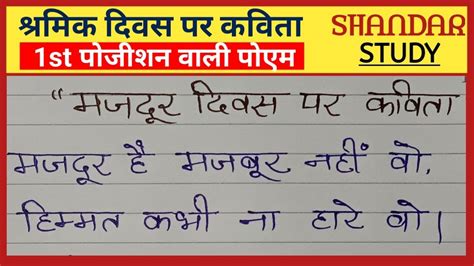 श्रमिक दिवस पर कविता
1st पोजीशन वाली पोएम
SHANDAR
STUDY
"मजदूर दिवस पर कविता
मजदूर है मजबूर नहीं वो,
हिम्मत कभी ना हारे वो।